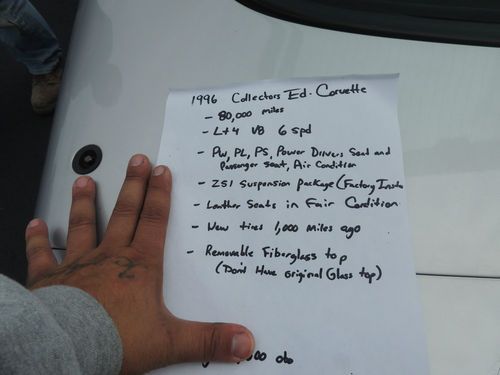 1996 Collectors Ed. Corvette
- 80,000 miles
- Lt4 V8 6 spd
- PW, PL, PS, Power Drivers Seat and
Passenger seat, Air Condition
- Z51 Suspension Package (Factory Insta
- Leather Seats in Fair Condition
- New tires 1,000 miles ago
- Removable Fiberglass top
(Don't Have original Glass top)
obo